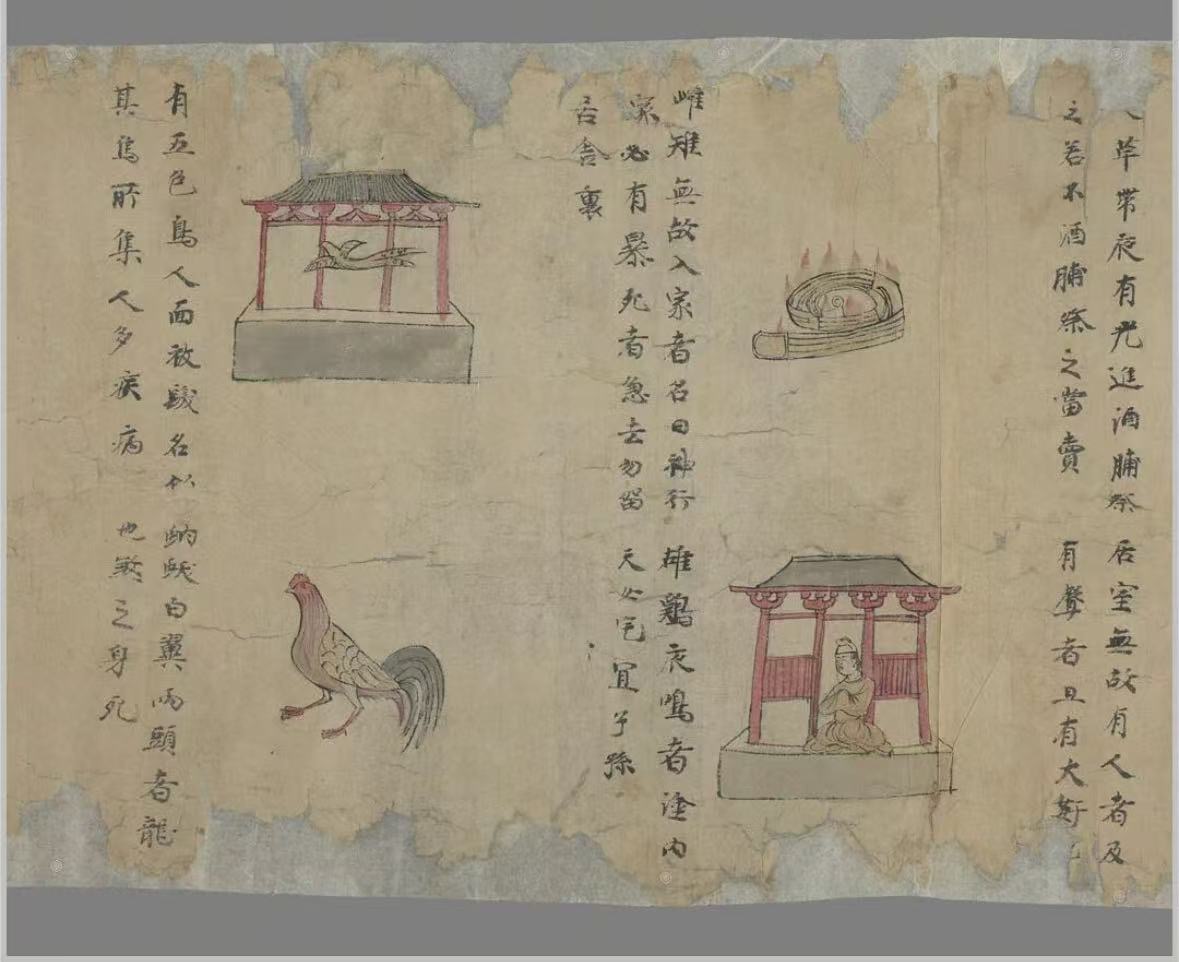 草帶夜有光進酒脯祭
之若不酒脯祭之當賣
居室無故有人者及
有聲者且有大
雌雉無故入家者名曰神行
家必有暴死者急去勿留
舍裏
雄鷄夜鳴者塗內
天火宅宜子孫
有五色鳥人面被髮名
其鳥所集人多疾病
白翼兩頭者龍
也煞之身死